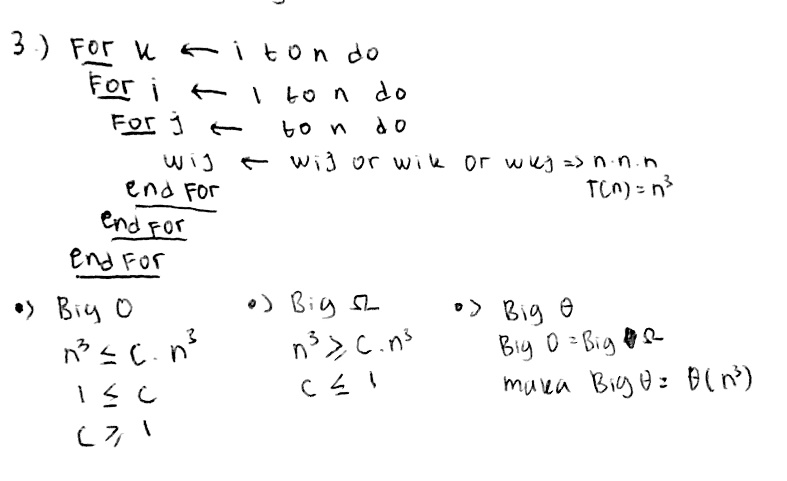 3.) For k ← i to n do
For i ← 1 to n do
For j ← to n do
wij ← wij or wik or wkj => n.n.n
T(n) = n³
end For
end For
end For
•) Big O
n³ ≤ C. n³
1 ≤ C
C ≥ 1
•) Big Ω
n³ ≥ C.n³
C ≤ 1
•) Big θ
Big O = Big Ω
maka Big θ = θ(n³)